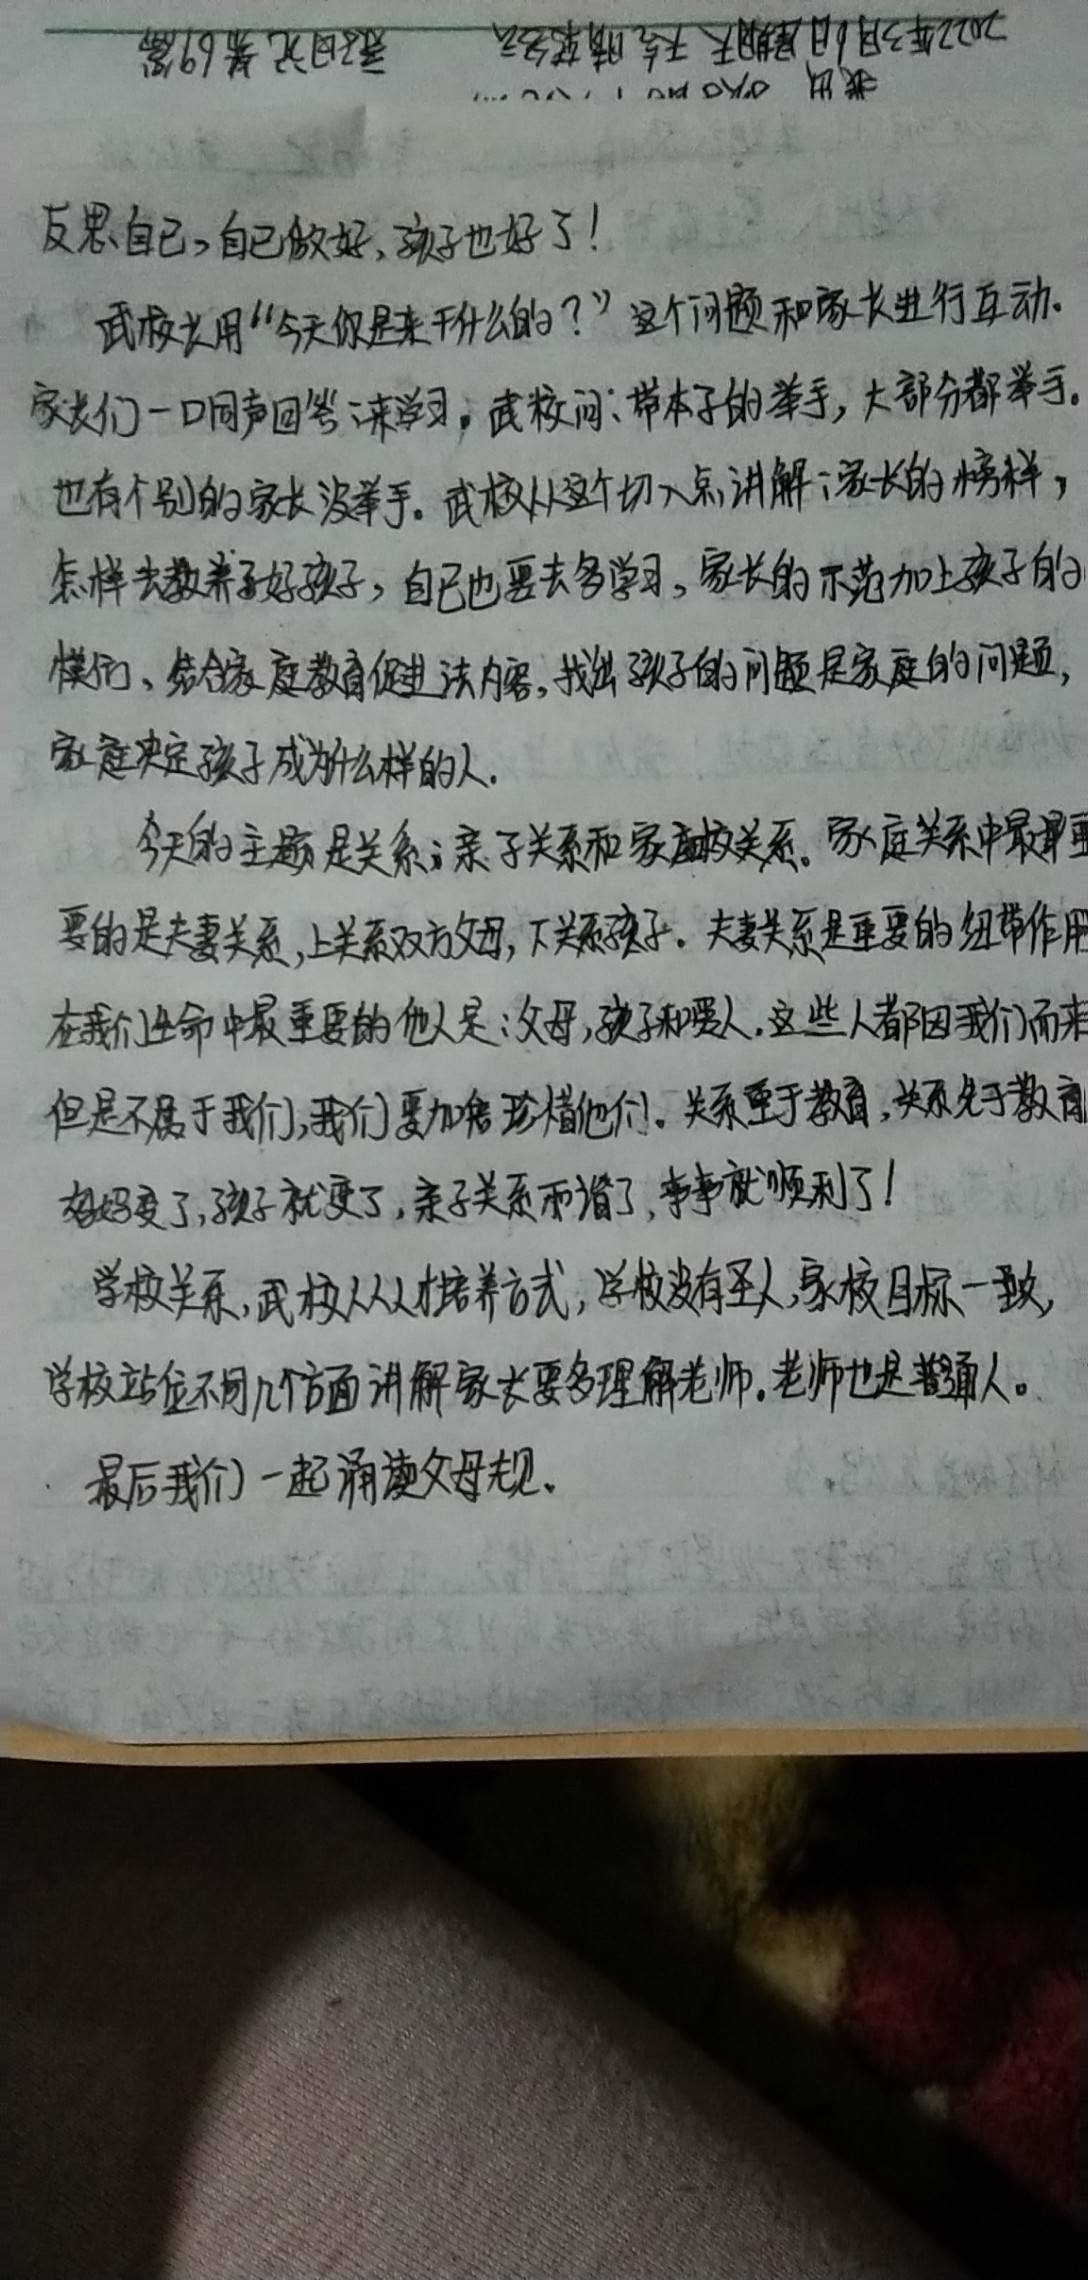 2022年3月6日星期天 天气晴 亲子日记第69篇
反思自己,自己做好,孩子也好了!
武校长用“今天你是来干什么的?”这个问题和家长进行互动.
家长们一口同声回答:来学习。武校问:带本子的举手,大部分都举手。
也有个别的家长没举手。武校从这个切入点,讲解:家长的榜样,
怎样去教养好孩子,自己也要去多学习,家长的示范加上孩子的
模仿、结合家庭教育促进法内容,找出孩子的问题是家庭的问题,
家庭决定孩子成为什么样的人.
今天的主题是关系;亲子关系和家校关系。家庭关系中最重
要的是夫妻关系,上关系双方父母,下关系孩子.夫妻关系是重要的纽带作用
在我们生命中最重要的他人是:父母,孩子和爱人.这些人都因我们而来
但是不属于我们,我们要加倍珍惜他们.关系重于教育,关系先于教育
妈妈变了,孩子就变了,亲子关系和谐了,事事就顺利了!
学校关系,武校从人才培养方式,学校没有圣人,家校目标一致,
学校站位不同几个方面讲解家长要多理解老师.老师也是普通人。
最后我们一起诵读父母规.